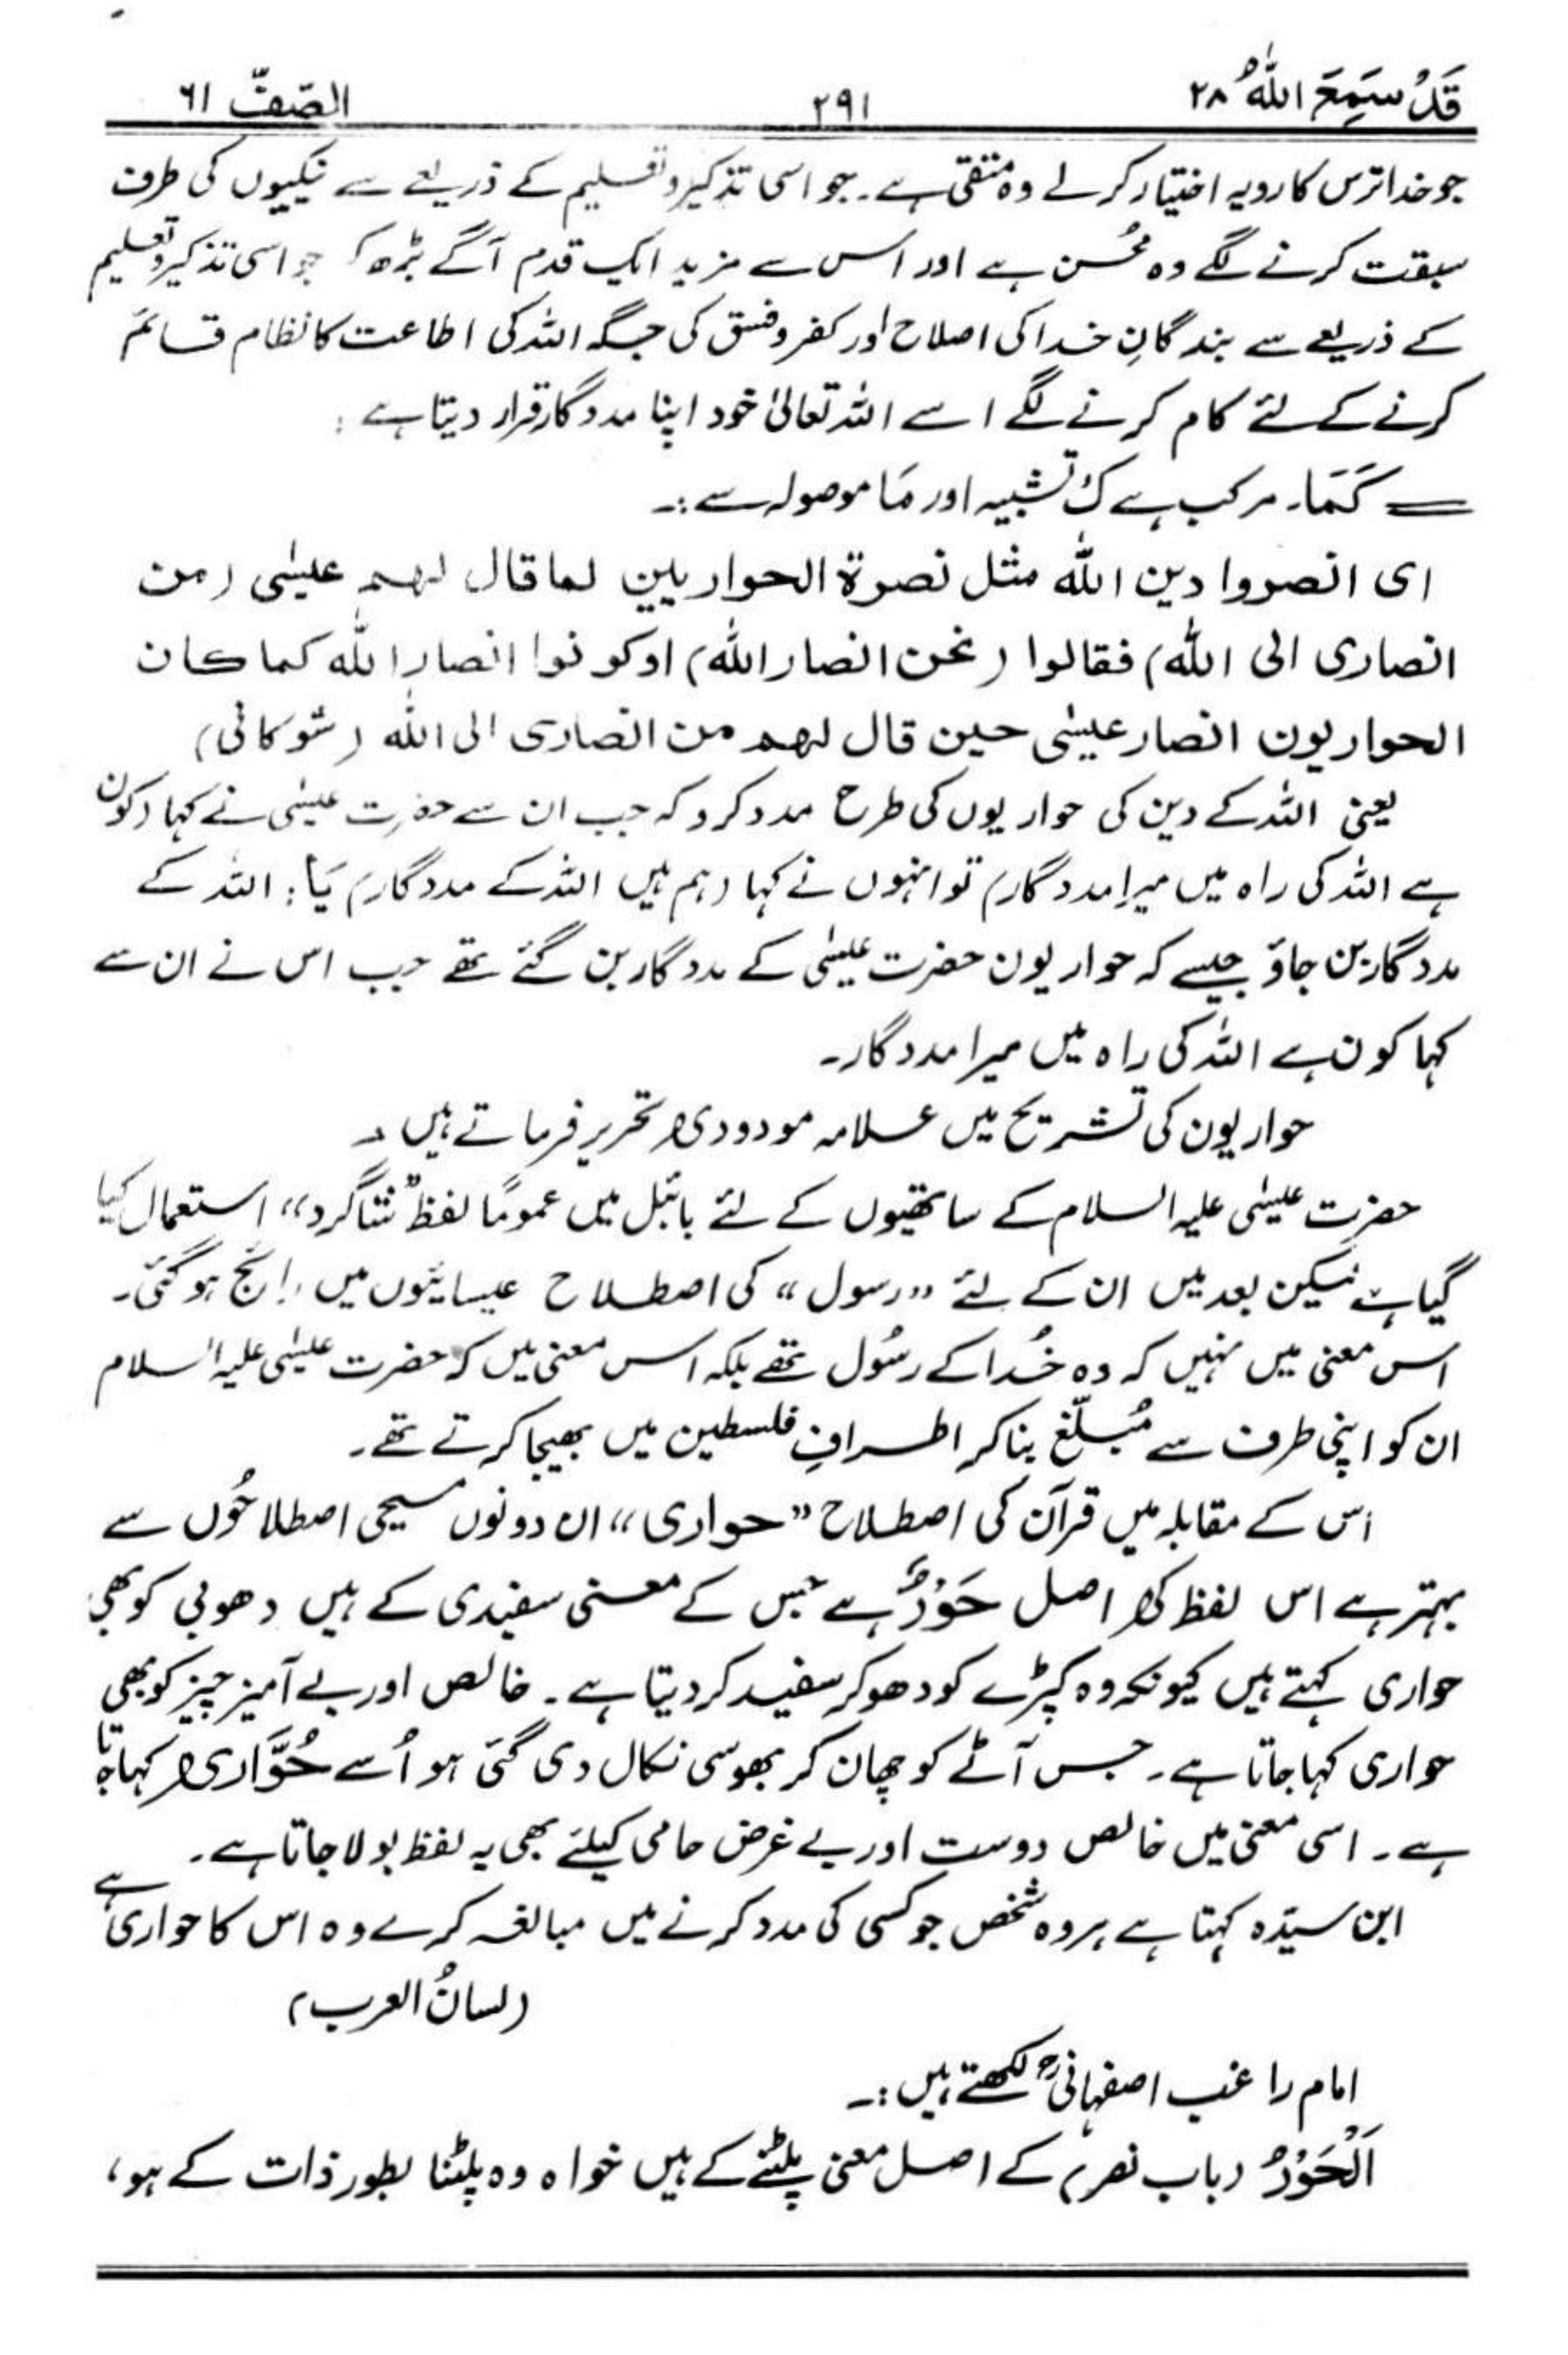 قَدْ سَمِعَ اللّٰهُ ۲۸ ۲۹۱ الصّفّ ۶۱
جو خدا ترس کا رویہ اختیار کرلے وہ متقی ہے۔ جو اسی تذکیر و تعلیم کے ذریعے سے نیکیوں کی طرف
سبقت کرنے لگے وہ محُسن ہے اور اس سے مزید ایک قدم آگے بڑھ کر جو اسی تذکیر و تعلیم
کے ذریعے سے بندگانِ خدا کی اصلاح اور کفر و فسق کی جگہ اللہ کی اطاعت کا نظام قائم
کرنے کے لئے کام کرنے لگے اسے اللہ تعالیٰ خود اپنا مددگار قرار دیتا ہے :
= کَمَا۔ مرکب ہے كَ تشبیہ اور مَا موصولہ سے :۔
ای انصروا دین اللّٰہ مثل نصرۃ الحواریین لما قال لہم عیسٰی (من
انصاری الی اللّٰہ) فقالوا (نحن انصار اللّٰہ) او کونوا انصار اللّٰہ کما کان
الحواریون انصار عیسٰی حین قال لہم من انصاری الی اللّٰہ (شوکانی)
یعنی اللہ کے دین کی حواریوں کی طرح مدد کرو کہ جب ان سے حضرت عیسٰی نے کہا (کون
ہے اللہ کی راہ میں میرا مددگار) تو انہوں نے کہا (ہم ہیں اللہ کے مددگار) یَا: اللہ کے
مددگار بن جاؤ جیسے کہ حواریون حضرت عیسٰی کے مددگار بن گئے تھے جب اس نے ان سے
کہا کون ہے اللہ کی راہ میں میرا مددگار۔
حواریون کی تشریح میں علامہ مودودیؒ تحریر فرماتے ہیں :۔
حضرت عیسٰی علیہ السلام کے ساتھیوں کے لئے بائبل میں عمومًا لفظ "شاگرد" استعمال کیا
گیا ہے لیکن بعد میں ان کے لئے "رسول" کی اصطلاح عیسائیوں میں رائج ہوگئی۔
اس معنی میں نہیں کہ وہ خُدا کے رسُول تھے بلکہ اس معنی میں کہ حضرت عیسٰی علیہ السلام
ان کو اپنی طرف سے مُبلّغ بنا کر اطرافِ فلسطین میں بھیجا کرتے تھے۔
اس کے مقابلہ میں قرآن کی اصطلاح "حواری" ان دونوں مسیحی اصطلاحُوں سے
بہتر ہے اس لفظ کا اصل حَوْرٌ ہے جس کے معنی سفیدی کے ہیں دھوبی کو بھی
حواری کہتے ہیں کیونکہ وہ کپڑے کو دھو کر سفید کر دیتا ہے۔ خالص اور بے آمیز چیز کو بھی
حواری کہا جاتا ہے۔ جس آٹے کو چھان کر بھوسی نکال دی گئی ہو اُسے حُوَّاریٰ کہا جاتا
ہے۔ اسی معنی میں خالص دوست اور بے غرض حامی کیلئے بھی یہ لفظ بولا جاتا ہے۔
ابن سیّدہ کہتا ہے ہر وہ شخص جو کسی کی مدد کرنے میں مبالغہ کرے وہ اس کا حواری ہے
(لسانُ العرب)
امام راغب اصفہانیؒ لکھتے ہیں :۔
اَلْحَوْرُ (باب نصر) کے اصل معنی پلٹنے کے ہیں خواہ وہ پلٹنا بطور ذات کے ہو،